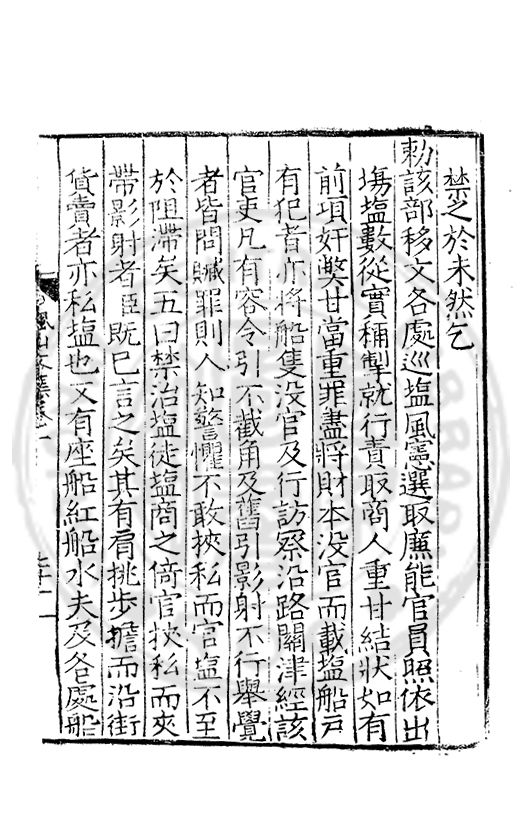 禁之於未然乞
勑該部移文各處巡塩風憲選取廉能官員照依出
塲塩數從實稱掣就行責取商人重甘結狀如有
前項奸弊甘當重罪盡將財本没官而載塩船戸
有犯者亦將船隻没官及行訪察沿路關津經該
官吏凡有容令引不截角及舊引影射不行舉覺
者皆問贓罪則人知警懼不敢挾私而官塩不至
於阻滯矣五曰禁治塩徒塩商之倚官挾私而夾
帶影射者臣既已言之矣其有肩挑步擔而沿街
貨賣者亦私塩也又有座船紅船水夫及各處船